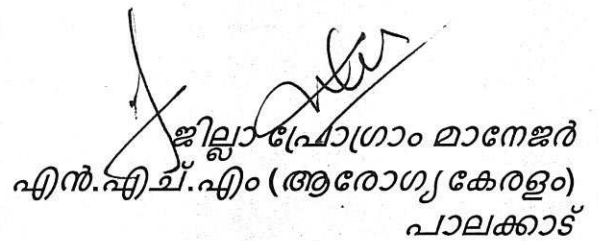 ജില്ലാ പ്രോഗ്രാം മാനേജർ
എൻ.എച്ച്.എം (ആരോഗ്യ കേരളം)
പാലക്കാട്